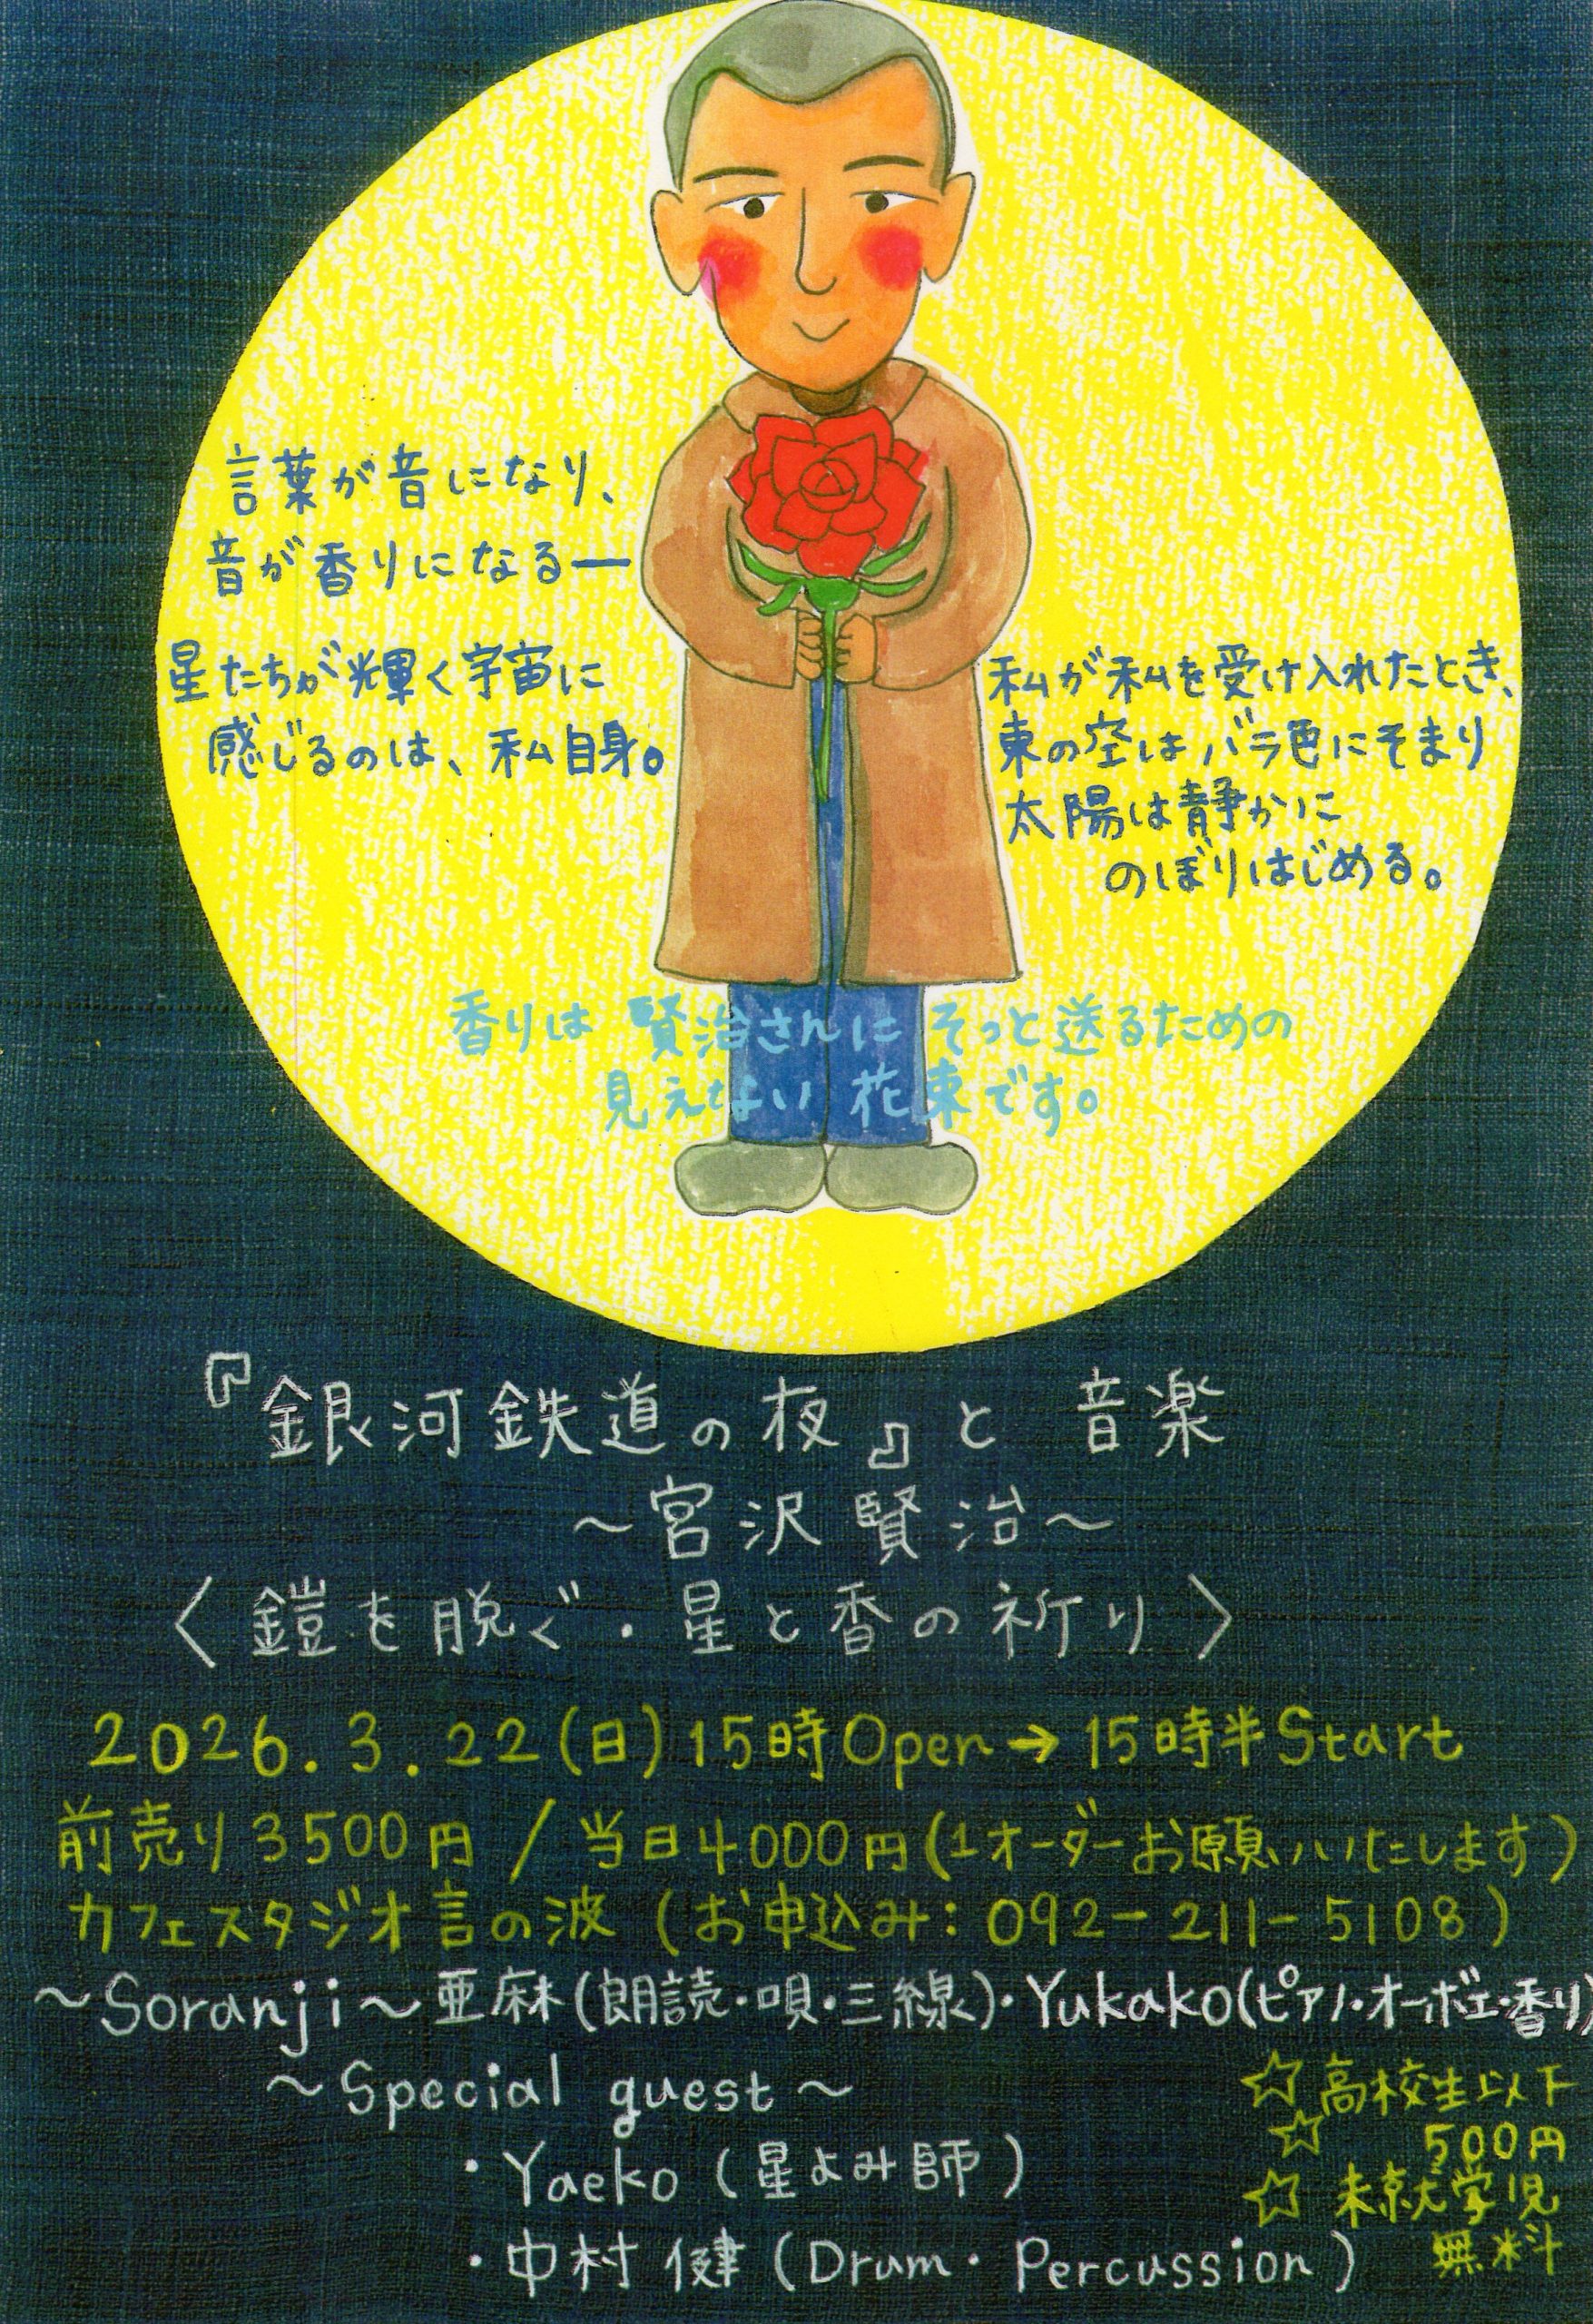 言葉が音になり、
音が香りになる―
星たちが輝く宇宙に
感じるのは、私自身。
私が私を受け入れたとき、
東の空はバラ色にそまり
太陽は静かに
のぼりはじめる。
香りは 賢治さんに そっと送るための
見えない 花束です。
『銀河鉄道の夜』と 音楽
～宮沢賢治～
〈鎧を脱ぐ・星と香の祈り〉
2026.3.22(日)15時Open→15時半Start
前売り3500円/当日4000円(1オーダーお願いいたします)
カフェスタジオ言の波(お申込み:092-211-5108)
～Soranji～亜麻(朗読・唄・三線)・Yukako(ピアノ・オーボエ・香り)
～Special guest～
・Yaeko(星よみ師)
・中村 健(Drum・Percussion)
☆高校生以下
☆ 500円
☆ 未就学児
無料